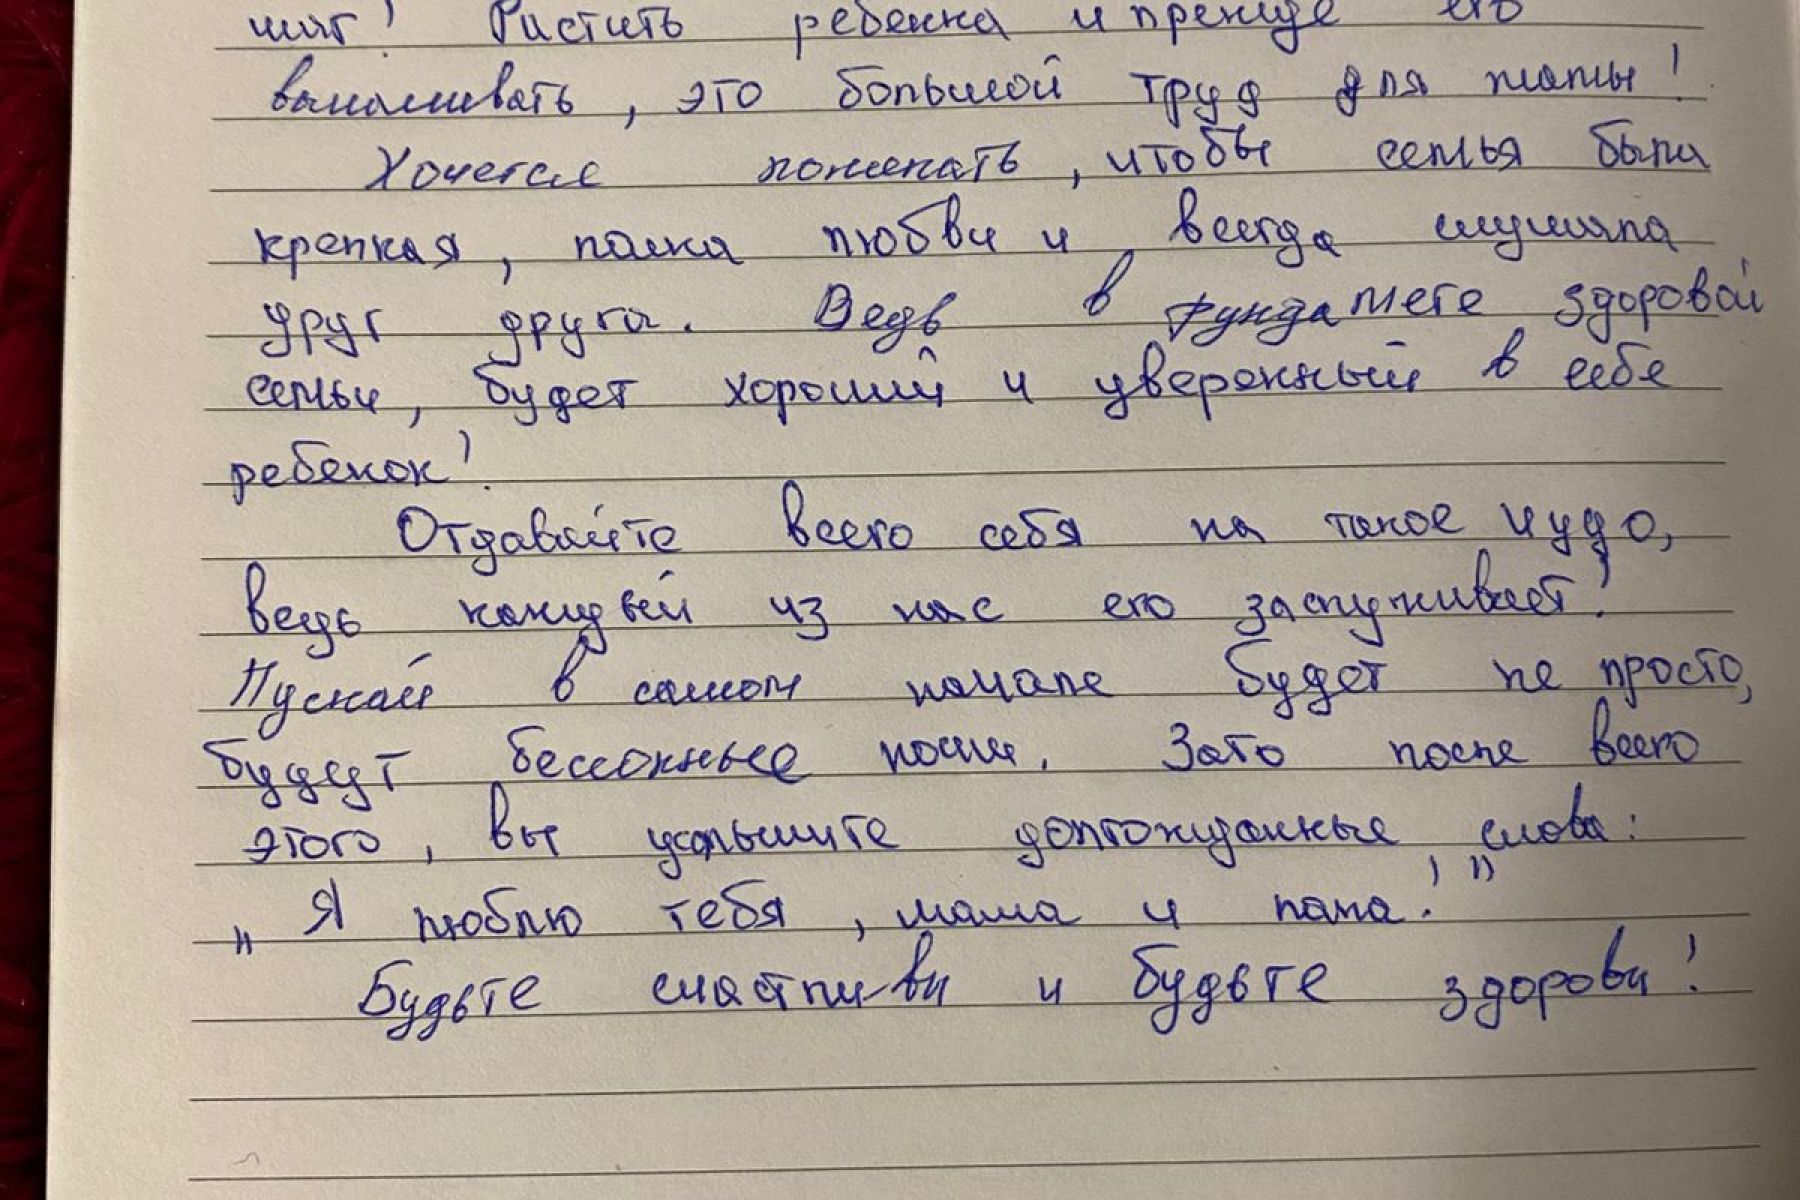 шаг! Растить ребенка и прежде его
вынашивать, это большой труд для мамы!
Хочется пожелать, чтобы семья была
крепкая, полна любви и всегда слушала
друг друга. Ведь в фундамете здоровой
семьи, будет хороший и уверенный в себе
ребенок!
Отдавайте всего себя на такое чудо,
ведь каждый из нас его заслуживает!
Пускай в самом начале будет не просто,
будут бессонные ночи. Зато после всего
этого, вы услышите долгожданные слова:
„Я люблю тебя, мама и папа!"
Будьте счастливы и будьте здоровы!